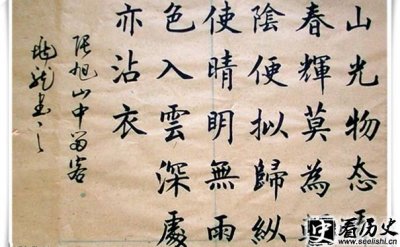 山光物态弄
春輝莫為
陰便拟歸縱
使晴明無雨
色入雲深處
亦沾衣
张旭山中留客
看历史
www.seelishi.cn